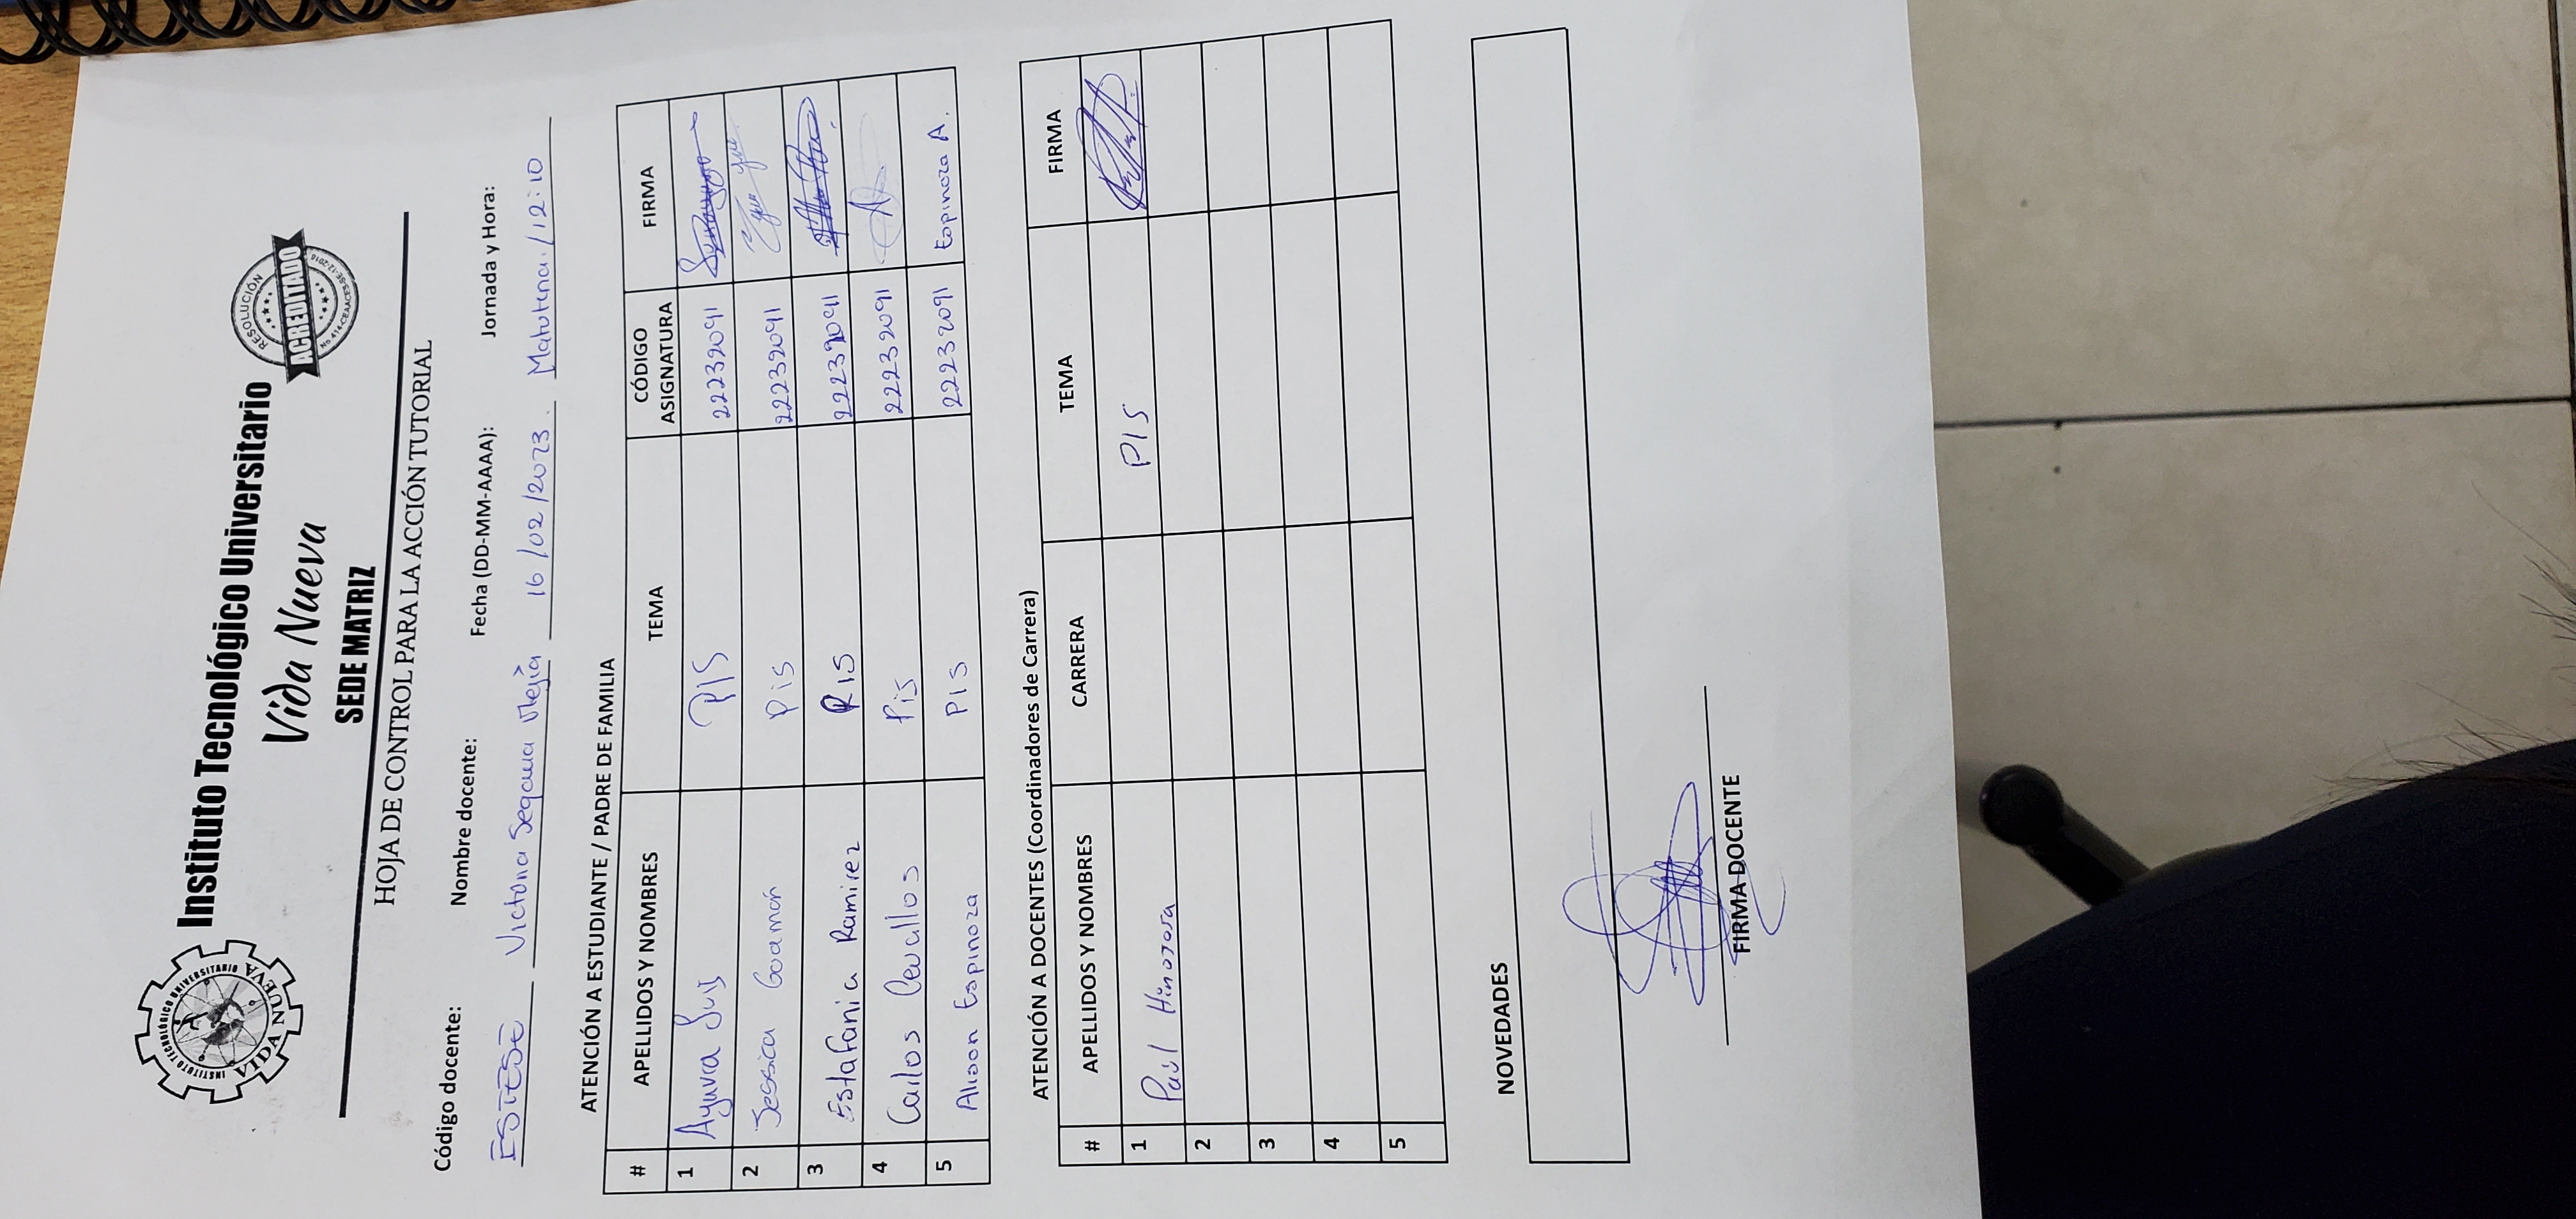 INSTITUTO TECNOLÓGICO UNIVERSITARIO
VIDA NUEVA
Instituto Tecnológico Universitario
Vida Nueva
SEDE MATRIZ
RESOLUCIÓN
ACREDITADO
No. 414-CEAACES-SE-12-2016
HOJA DE CONTROL PARA LA ACCIÓN TUTORIAL
Código docente: Nombre docente: Fecha (DD-MM-AAAA): Jornada y Hora:
ESTESE Victoria Segovia Mejía 16/02/2023. Matutina./12:10
ATENCIÓN A ESTUDIANTE / PADRE DE FAMILIA
# APELLIDOS Y NOMBRES TEMA CÓDIGO ASIGNATURA FIRMA
1 Luis PIS 22232091
2 Jessica Guamán Pis 22232091
3 Estafania Ramirez PIS 22232091
4 Carlos Cevallos Pis 22232091
5 Alison Espinoza PIS 22232091 Espinoza A.
ATENCIÓN A DOCENTES (Coordinadores de Carrera)
# APELLIDOS Y NOMBRES CARRERA TEMA FIRMA
1 Paúl Hinojosa PIS
2
3
4
5
NOVEDADES
FIRMA DOCENTE